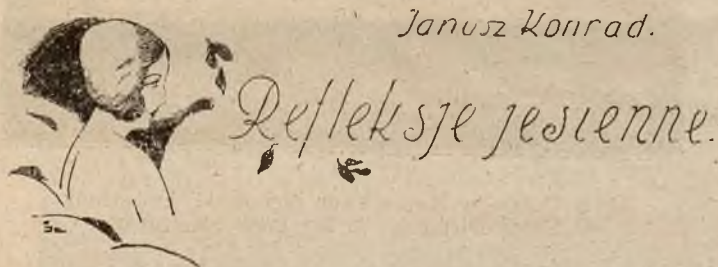 Janusz Konrad.
Refleksje jesienne.